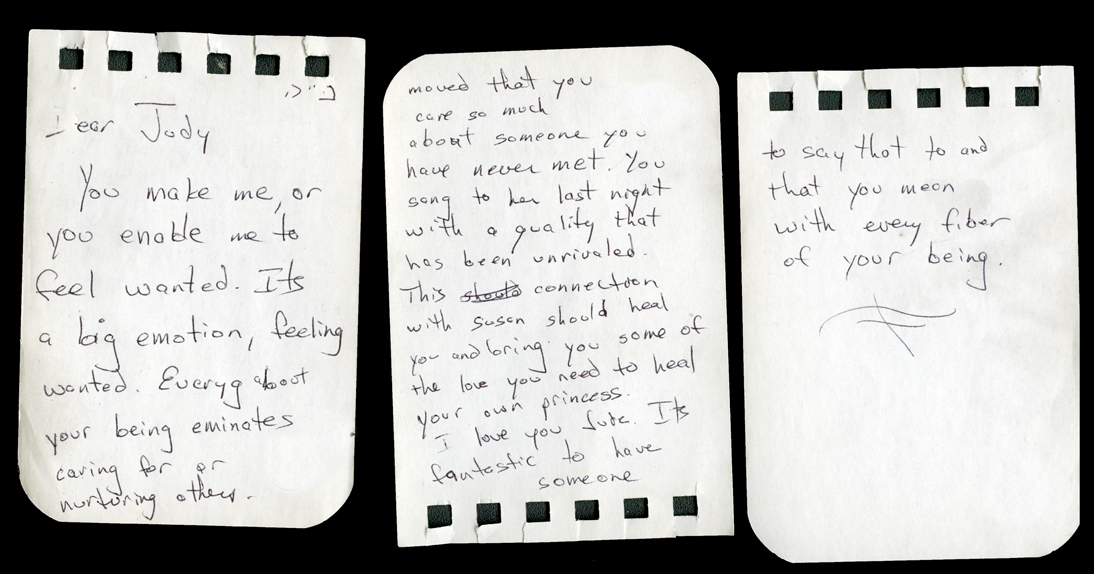 Dear Judy
You make me, or
you enable me to
feel wanted. Its
a big emotion, feeling
wanted. Everyg about
your being eminates
caring for or
nurturing others.
moved that you
care so much
about someone you
have never met. You
sang to her last night
with a quality that
has been unrivaled.
This should connection
with susan should heal
you and bring you some of
the love you need to heal
your own princess.
I love you Jude. Its
fantastic to have
someone
to say that to and
that you mean
with every fiber
of your being.